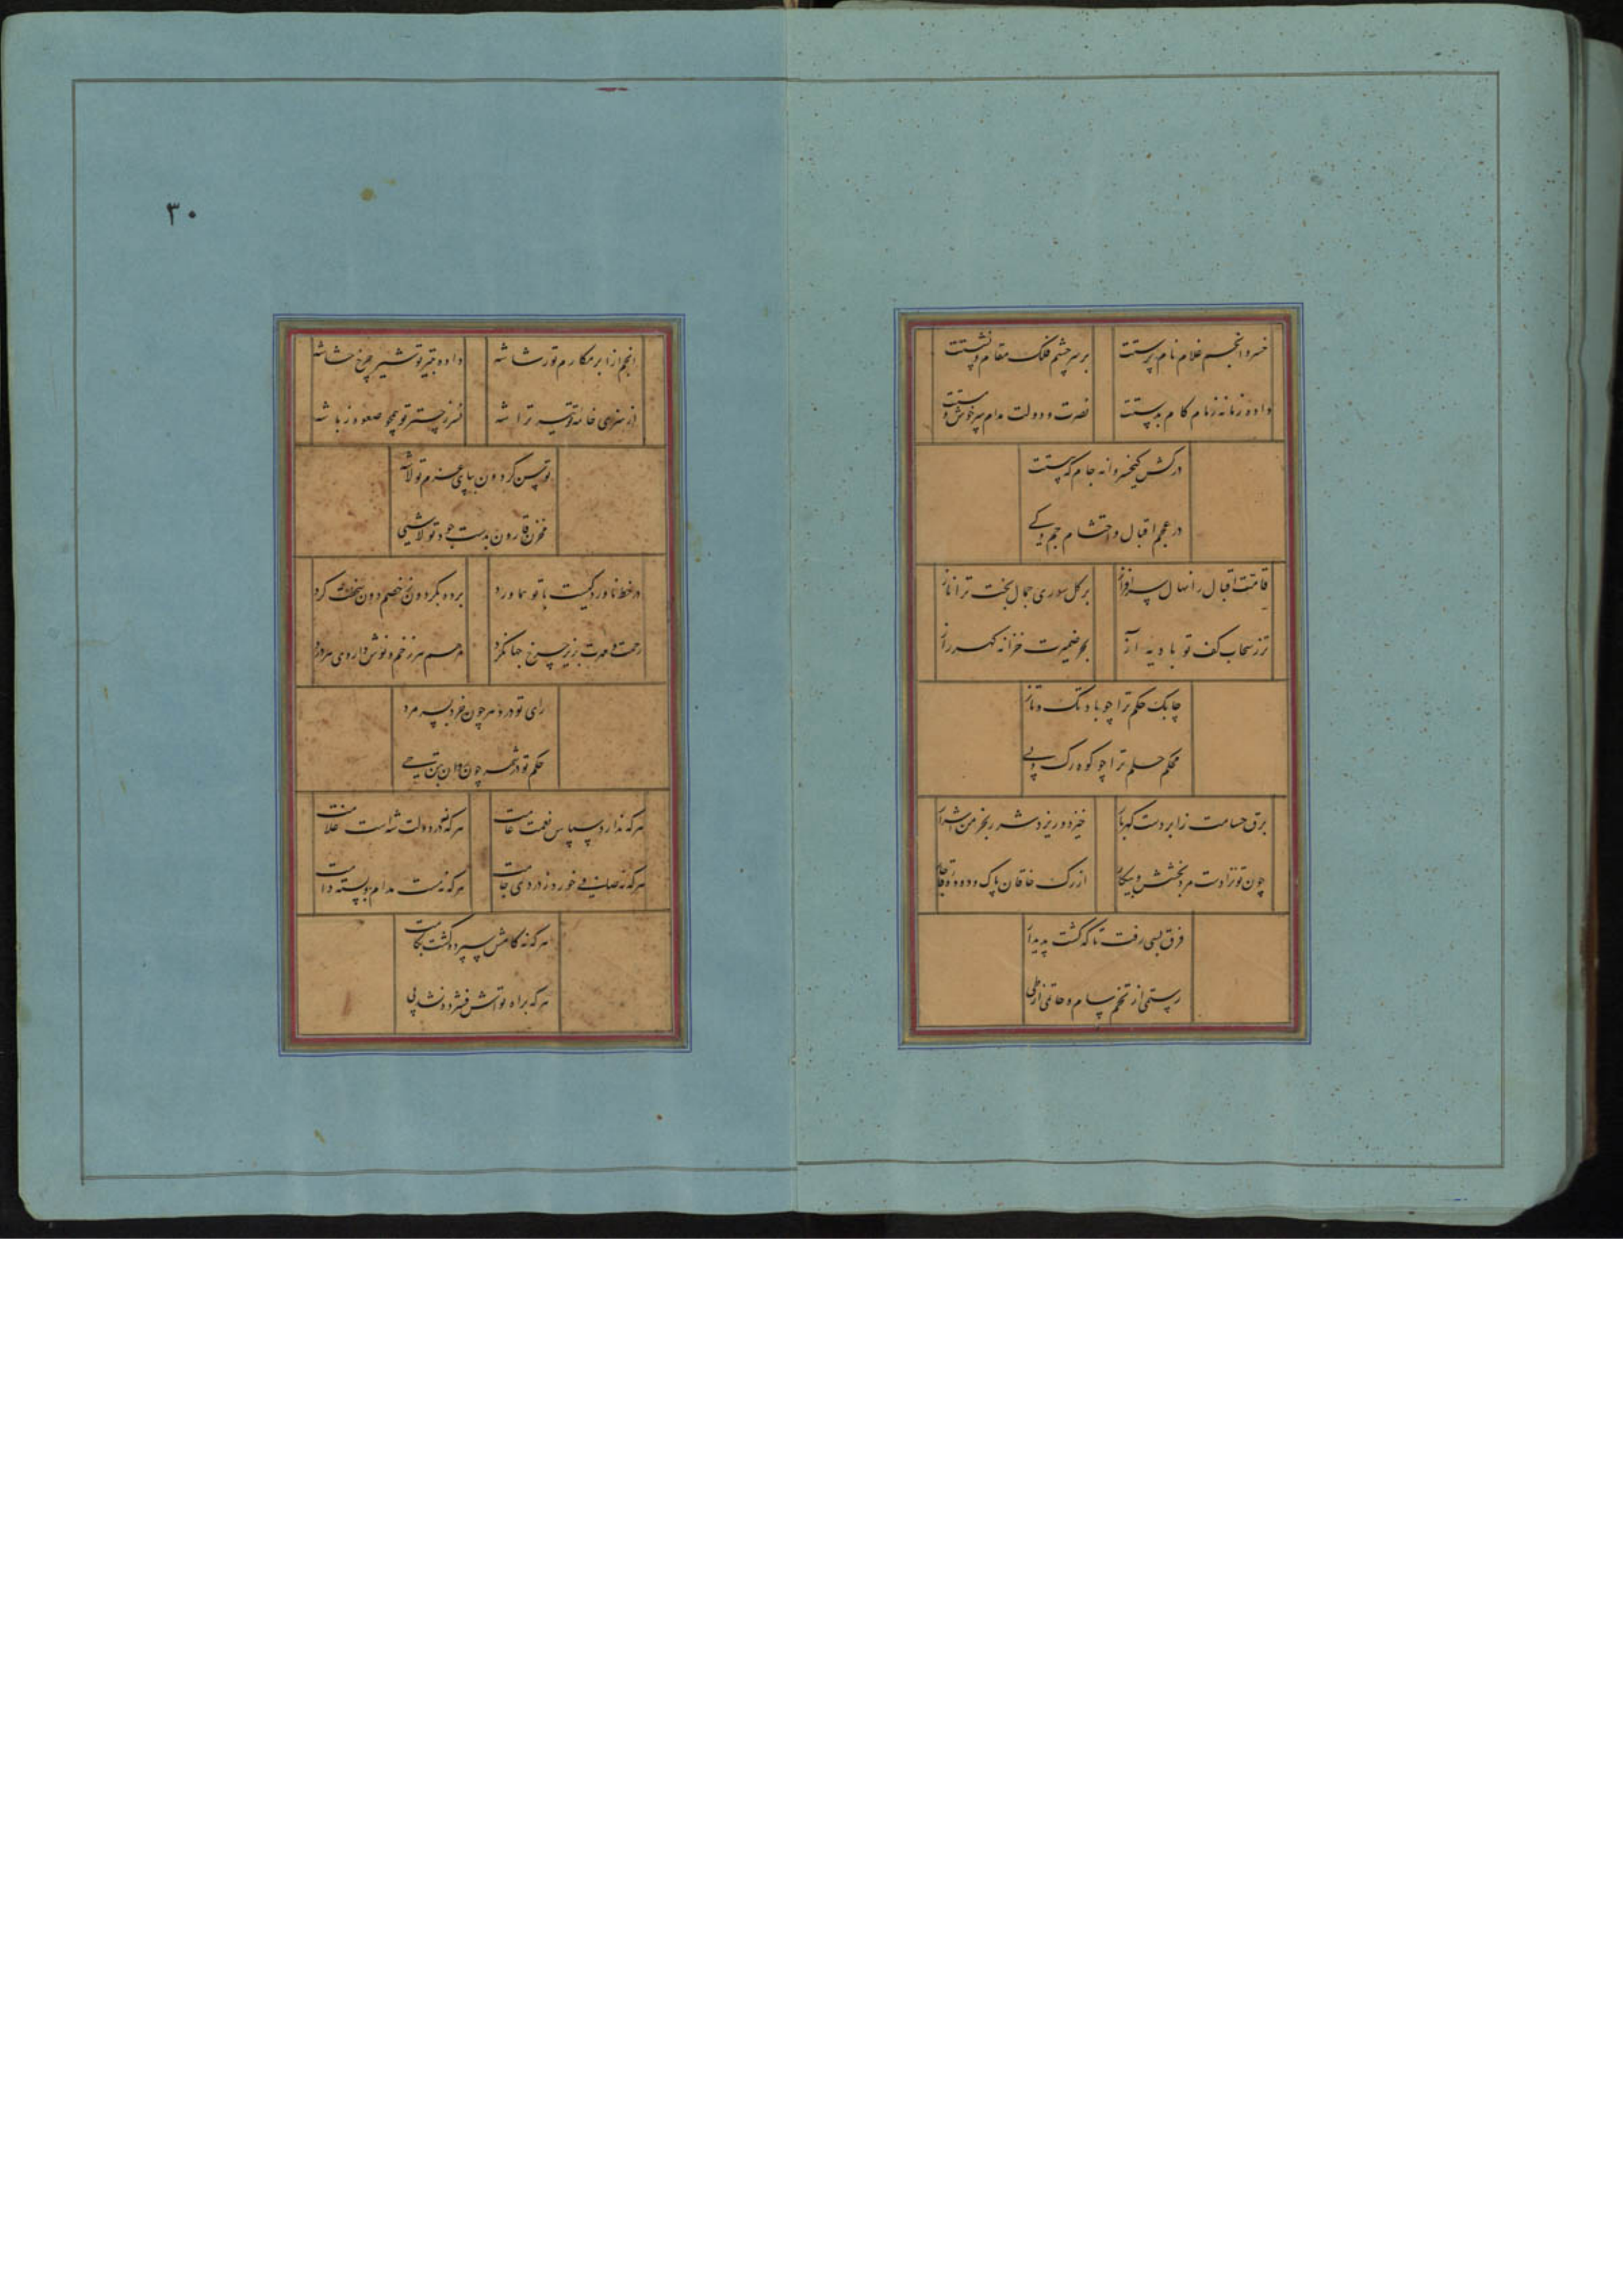 خسرو انجم غلام نام پرستت
بر سر چشم فلک مقام و نشستت
داده زمانه زمام کام بدستت
نصرت و دولت مدام سرخوش و مستت
درکش کیخسروانه جام که هستت
در عجم اقبال و احتشام جم و کی
قامت اقبال را نهال سرافراز
بر گل سوری جمال بخت ترا ناز
تر ز سحاب کف تو بادیهٔ آز
بحر ضمیرت خزانه گهر راز
چابک حکم ترا چو باد تک و تاز
محکم حلم ترا چو کوه رگ و پی
برق حسامت ز ابر دست گهربار
خیزد و ریزد شرر بخرمن اشرار
چون تو نزادست مرد بخشش و پیکار
از رگ خاقان پاک و دوده قاجار
قرن بسی رفت تا که گشت پدیدار
رستمی از تخم سام و حاتمی از طی
۳۰
انجم از ابر مکارم تو رشاشه
داده تیر تو شیر چرخ حشاشه
از سر خامه تو تیر تراشه
نسر ز چتر تو همچو صعوه ز باشه
توسن گردون بپای عزم تو لاشه
مخزن قارون بدست جود تو لاشیی
در خط ناورد کیست با تو هماورد
برده بگردون نخ خصم دون سخطت گرد
رحمت و مهرت بزیر چرخ جهانگرد
مرهم هر زخم و نوش داروی هر درد
رای تو در دهر چون خرد بسر مرد
حکم تو در شهر چون روان بتن حی
هر که ندارد سپاس نعمت عامت
هر که نه در دولت شه است غلامت
هر که نه صاف می خورد ز دردی جامت
هر که نه هست مدام بسته دامت
هر که نه کامش سپرده گشت بکامت
هر که براه تو اش فشرده نشد پی